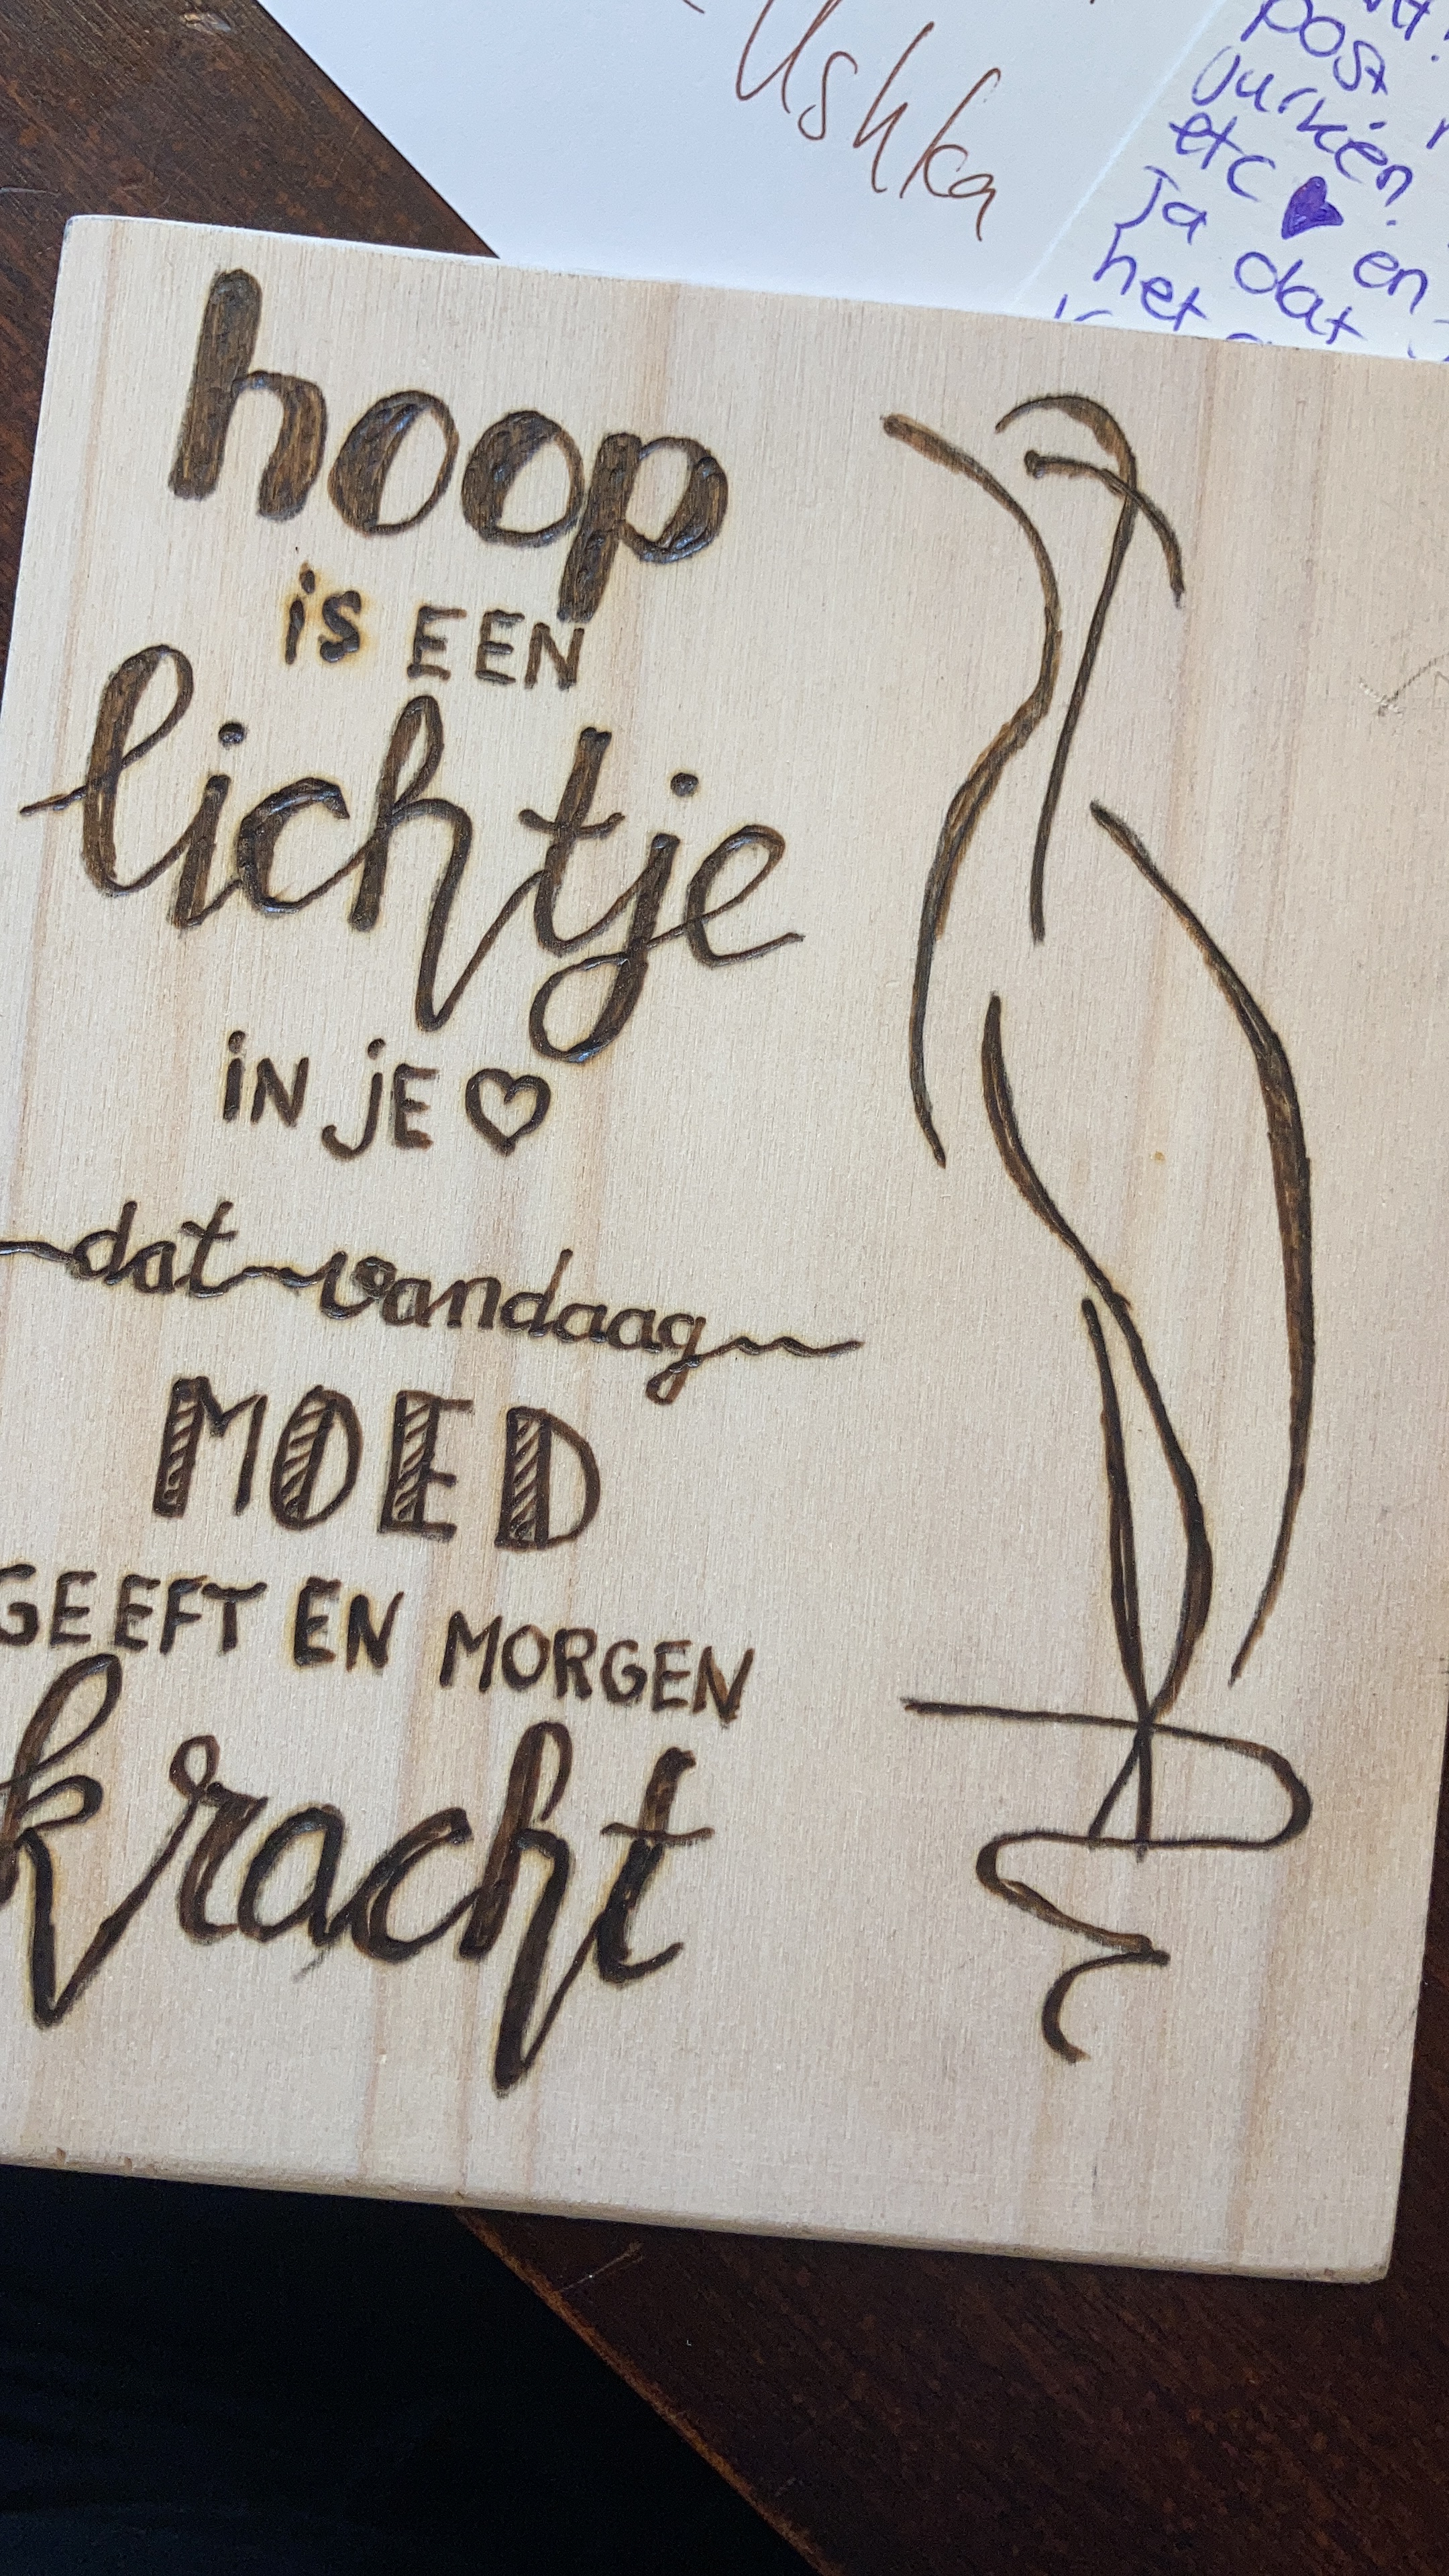 Ushka
post
jurken
etc ♥
ja dat en
het
hoop
is EEN
lichtje
iN jE ♡
dat vandaag
MOED
GEEFT EN MORGEN
kracht